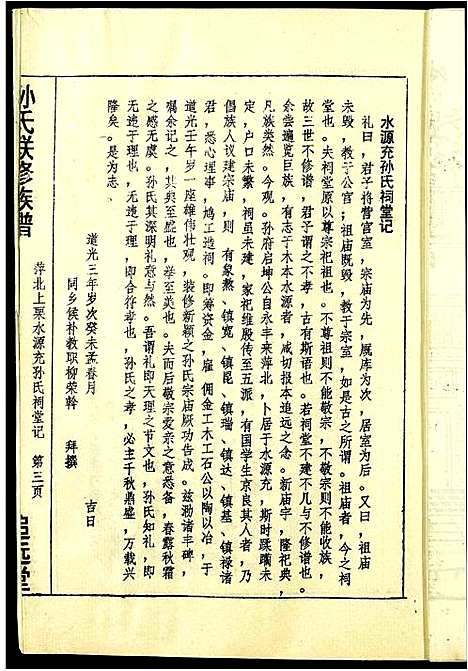 水源充孙氏祠堂记
礼曰，君子将营宫室，宗庙为先，厩库为次，居室为后。又曰，祖庙
未毁，教于公宫；祖庙既毁，教于宗室，如是古之所谓。祖庙者，今之祠
堂也。夫祠堂原以尊宗祀祖也。不尊祖则不能敬宗，不敬宗则不能收族，
故三世不修谱，君子谓之不孝，古有斯语也。若祠堂不建不几与不修谱也。
余尝遍览巨族，有志于木本水源者，咸切报本追远之念。新庙宇，隆祀典，
凡族类然。今观。孙府启坤公自永丰来萍北，卜居于水源充，斯时蹂躏未
宁，户口未繁，祠虽未建，家祀维殷传至五派，有国学生京良其人者，乃
倡族人议建宗庙，则有象熬、镇宽、镇昆、镇瑞、镇达、镇基、镇禄诸
君，悉心理事，鸠工造祠。即筹资金，雇佣金工木工石公以陶以冶，于
道光壬午岁一座雄伟壮观，装修新颖之孙氏宗庙厥功告成。兹泐诸丰碑，
嘱余记之，其矣至盛也，举至美也。夫而后敬宗爱亲之意悉备，春露秋霜
之感无虞。孙氏其深明礼意与然。吾谓礼即天理之节文也，孙氏知礼，即
无违于理也，无违于理，即合符孝也，孙氏之孝，必主千秋鼎盛，万载兴
隆矣。是为志、
道光三年岁次癸未孟春月 吉日
同乡侯补教职柳荣斡 拜撰
孙氏联修族谱
萍北上栗水源充孙氏祠堂记 第三页
追远堂